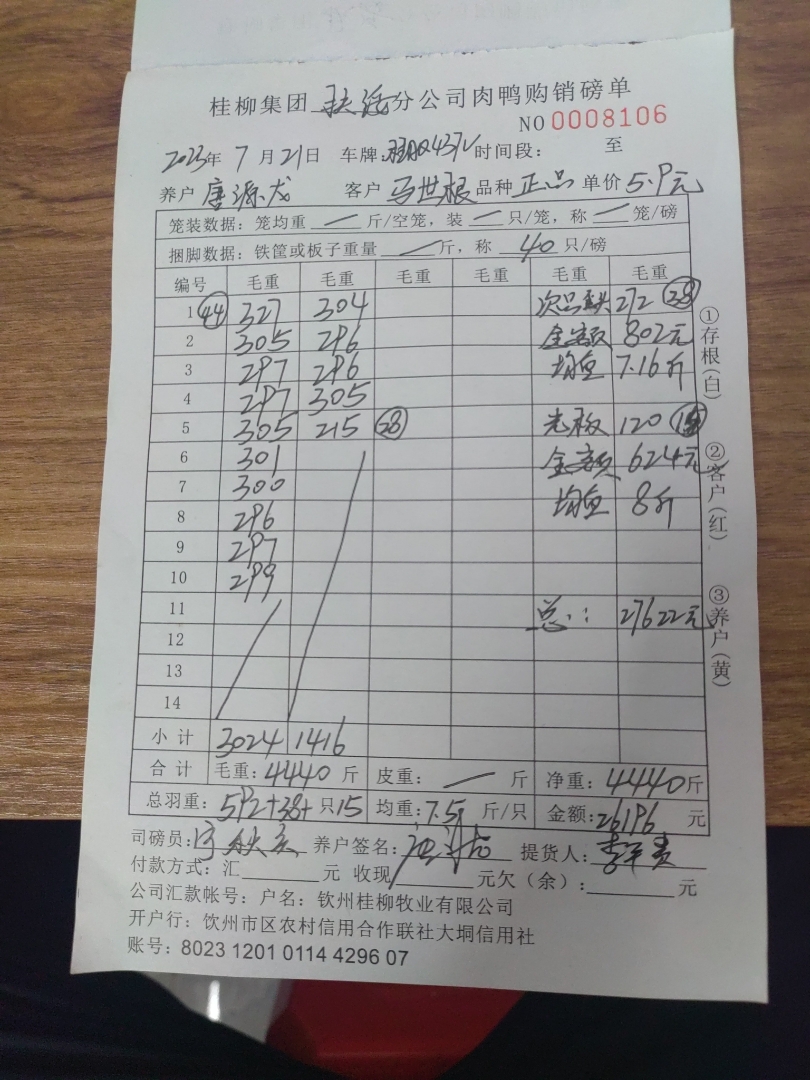 桂柳集团 扶绥 分公司肉鸭购销磅单
NO 0008106
2023年 7 月 21 日 车牌: 时间段: 至
养户 唐源龙 客户 马世根 品种 正品 单价 5.9元
笼装数据: 笼均重 — 斤/空笼, 装 — 只/笼, 称 — 笼/磅
捆脚数据: 铁筐或板子重量 — 斤, 称 40 只/磅
编号 毛重 毛重 毛重 毛重 毛重 毛重
1 (44) 327 304 次品 272 (38)
2 305 296 金额 802元
3 297 296 均重 7.16斤
4 297 305
5 305 215 (28) 光板 120 (15)
6 301 金额 624元
7 300 均重 8斤
8 296
9 297
10 299
11 总: 27622元
12
13
14
小计 3024 1416
合计 毛重: 4440 斤 皮重: — 斤 净重: 4440 斤
总羽重: 592+38+ 只 15 均重: 7.5 斤/只 金额: 26196 元
司磅员: 养户签名: 提货人:
付款方式: 汇 元 收现 元欠(余): 元
公司汇款帐号: 户名: 钦州桂柳牧业有限公司
开户行: 饮州市区农村信用合作联社大垌信用社
账号: 8023 1201 0114 4296 07
①存根(白)
②客户(红)
③养户(黄)